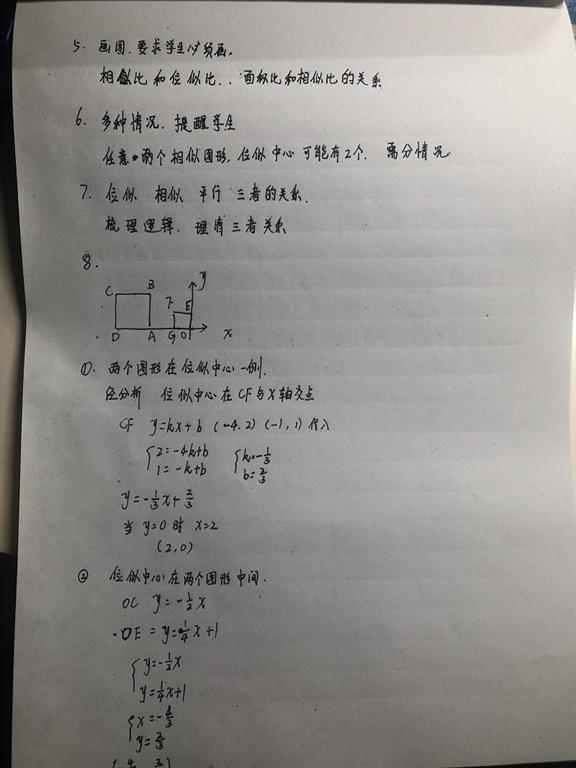 5. 画图.要求学生必须画。
相似比和位似比..面积比和相似比的关系
6. 多种情况.提醒学生
任意两个相似图形.位似中心可能有2个. 需分情况
7. 位似 相似 平行 三者的关系.
梳理逻辑.理清三者关系
8.
y
C B F E
D A G O x
①. 两个图形在位似中心一侧.
经分析 位似中心在CF与X轴交点
CF y=kx+b (-4.2) (-1,1) 代入
{2=-4k+b {k=-1/3
1=-k+b b=2/3
y=-1/3x+2/3
当 y=0 时 x=2
(2,0)
② 位似中心在两个图形中间.
OC y=-1/2x
DE = y=1/4x+1
{y=-1/2x
y=1/4x+1
{x=-4/3
y=2/3